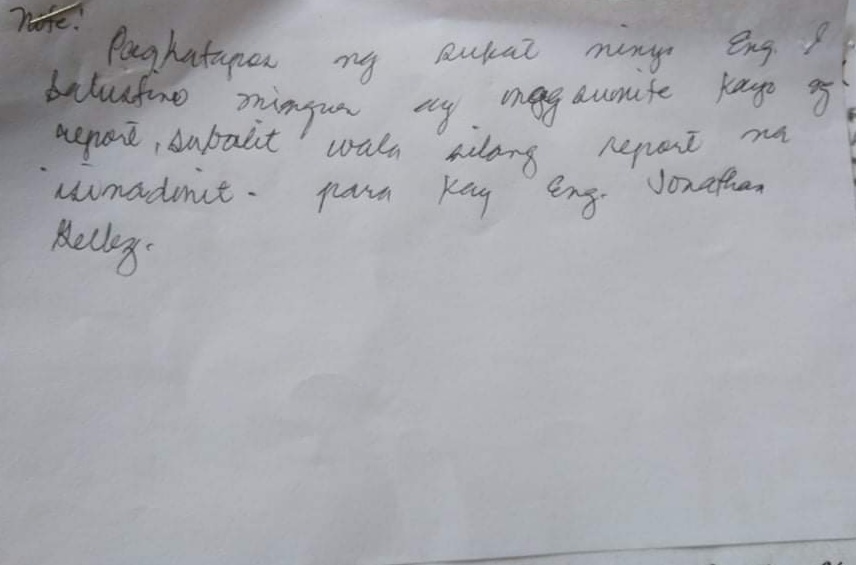 Note!
Paghatapos ng sukat ninyo Eng. &
balustino minguez ay magsumite kayo ng
report, subalit wala silang report na
isinadmit. para kay Eng. Jonathan